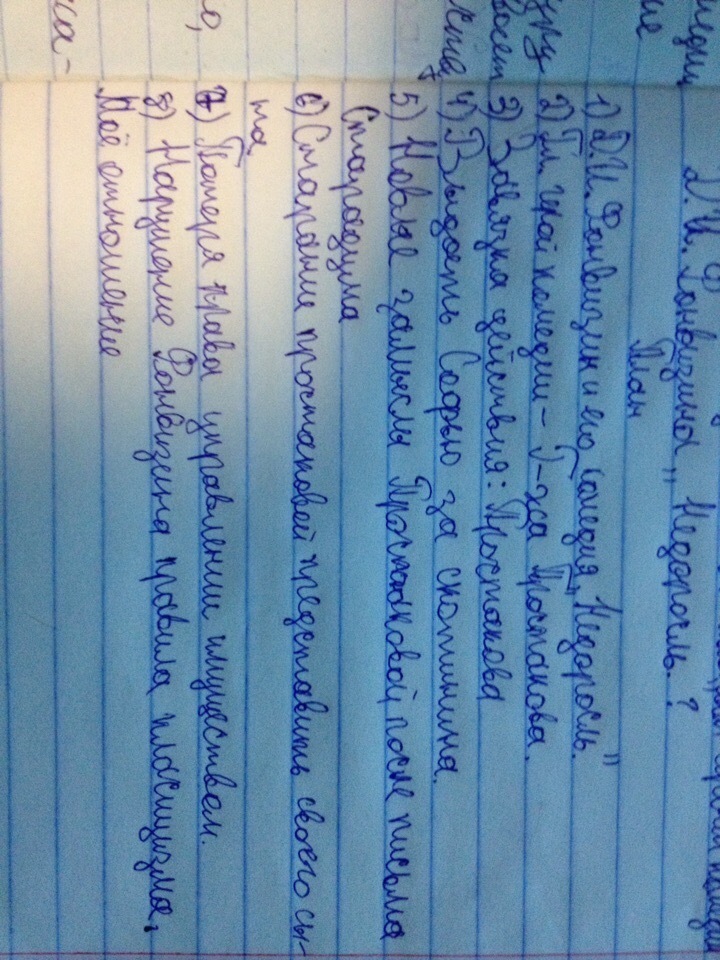 Д.И. Фонвизина „Недоросль.?
План
1) Д.И. Фонвизин и его комедия „Недоросль."
2) Гл. герой комедии – Г-жа Простакова.
3) Завязка действия: Простакова
4) Выдать Софью за скотинина.
5) Новые замыслы Простаковой после письма
Стародума
6) Старание простаковой представить своего сы-
на
7) Потеря права управлении имуществом.
8) Нарушение Фонвизина правила класицизма.
Моё отношение